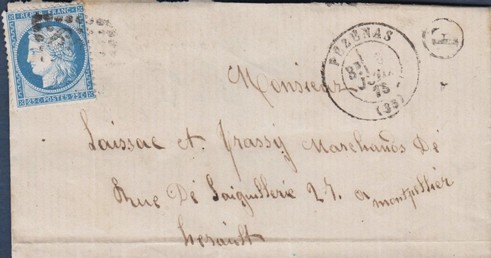 REPUB. FRANC.
25 C POSTES 25 C
PÉZENAS
(33)
Monsieur
Laissac et Frassy Marchands Dé
Rue Dé Laiguillerie 27. a montpellier
herault